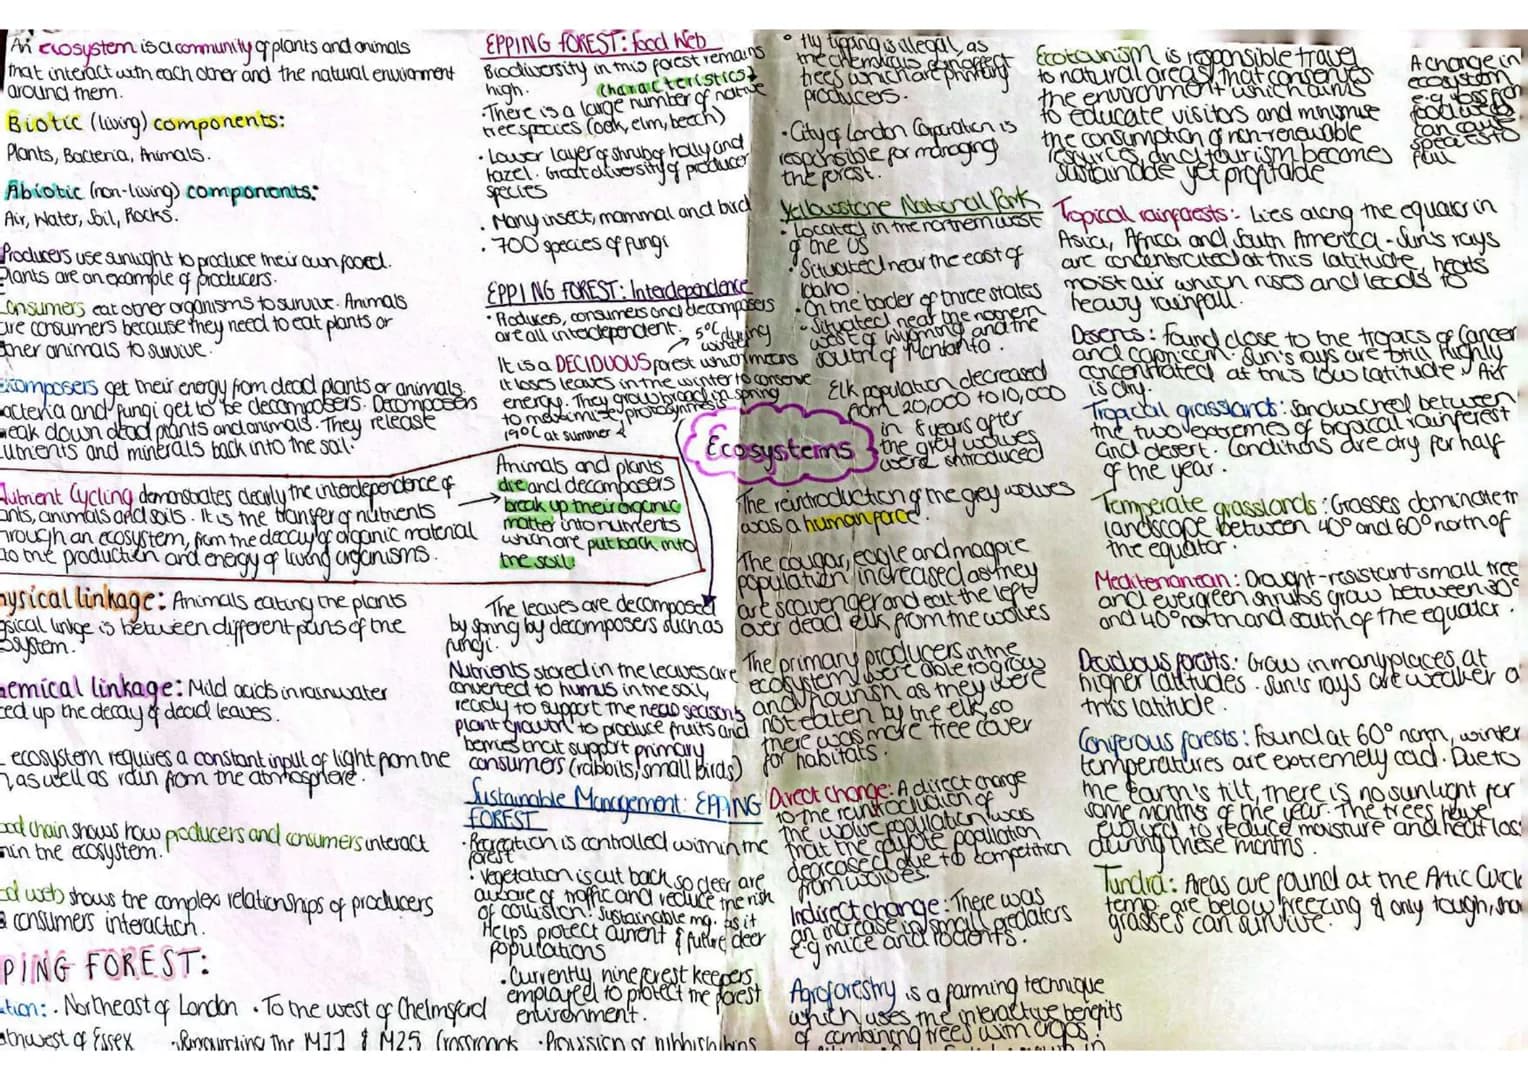 An ecosystem is a community of plants and animals
that interact with each other and the natural environment
around them.
Biotic (living) components:
Plants, Bacteria, Animals.
Abiotic (non-living) components:
Air, Water, Soil, Rocks.
Producers use sunlight to produce their own food.
Plants are an example of producers.
Consumers eat other organisms to survive. Animals
are consumers because they need to eat plants or
other animals to survive.
get their energy from dead plants or animals.
Bacteria and fungi get to be decomposers. Decomposers
break down dead plants and animals. They release
nutrients and minerals back into the soil.
Nutrient Cycling demonstrates clearly the interdependence of
plants, animals and soils. It is the transfer of nutrients
through an ecosystem, from the decay of organic material
to the production and energy of living organisms.
Physical linkage: Animals eating the plants
is between different parts of the
system.
Chemical linkage: Mild acids in rainwater
up the decay of dead leaves.
ecosystem requires a constant input of light from the
, as well as rain from the atmosphere.
food chain shows how producers and consumers interact
within the ecosystem.
food web shows the complex relationships of producers
consumers interaction.
PING FOREST:
tion: . Northeast of London . To the west of Chelmsford
of Essex the M11 & M25
EPPING FOREST: Food Web
Biodiversity in this forest remains
high. Characteristics:
· There is a large number of native
tree species (oak, elm, beech)
· Lower layer of shrub of holly and
hazel. Great diversity of producer
species
· Many insect, mammal and bird
· 700 species of fungi
EPPING FOREST: Interdependence
· Producers, consumers and decomposers
are all interdependent.
5°C during
winter
It is a DECIDUOUS forest which means
it loses leaves in the winter to conserve
energy. They grow broad in spring
to maximise photosynthesis
19°C at summer &
Animals and plants
die and decomposers
break up their organic
matter into nutrients
which are put back into
the soil.
The leaves are decomposed
by spring by decomposers such as
fungi.
Nutrients stored in the leaves are
converted to humus in the soil,
ready to support the new season's
plant growth to produce fruits and
berries that support primary
consumers (rabbits, small birds)
Sustainable Management: EPPING
FOREST
· Recreation is controlled within the
forest
· Vegetation is cut back so deer are
aware of traffic and reduce the risk
of collision. Sustainable mg. as it
helps protect current & future deer
populations
· Currently nine forest keepers
employed to protect the forest
environment.
· Provision of rubbish bins
· Fly tipping is illegal, as
the chemicals can affect
trees which are
producers.
· City of London Corporation is
responsible for managing
the forest.
Yellowstone National Park
· Located in the northern west
of the US
· Situated near the east of
Idaho.
· On the border of three states
· Situated near the northern
west of Wyoming and the
south of Montanta.
Elk population decreased
from 20,000 to 10,000
in 8 years after
the grey wolves
were introduced
Ecosystems
The reintroduction of the grey wolves
was a human force.
The cougar, eagle and magpie
population increased as they
are scavenger and eat the left
over dead elk from the wolves
The primary producers in the
ecosystem were able to grow
and nourish as they were
not eaten by the elk, so
there was more tree cover
for habitats.
Direct change: A direct change
to the reintroduction of
the wolve population was
that the coyote population
decreased due to competition
from wolves.
Indirect change: There was
an increase in small predators
e.g mice and rodents.
Agroforestry is a farming technique
which uses the interactive benefits
of combining trees with crops
Ecotourism is responsible travel
to natural areas, that conserves
the environment which aims
to educate visitors and minimise
the consumption of non-renewable
resources, and tourism becomes
sustainable yet profitable
A change in
ecosystem
e.g loss for
food web
can cause
species to
fall
Topical rainforests: Lies along the equator in
Asia, Africa and South America - Sun's rays
are concentrated at this latitude, heats
moist air which rises and leads to
heavy rainfall.
Deserts: Found close to the tropics of Cancer
and capricorn. Sun's rays are still highly
concentrated at this low latitude. Air
is dry.
Tropical grasslands: Sandwiched between
the two extremes of tropical rainforest
and desert. Conditions are dry for half
of the year.
Temperate grasslands: Grasses dominate
landscape between 40° and 60° north of
the equator.
Mediterranean: Drought-resistant small tree
and evergreen shrubs grow between 30°
and 40° north and south of the equator.
Deciduous forests: Grow in many places, at
higher latitudes. Sun's rays are weaker a
this latitude.
Coniferous forests: Found at 60° north, winter
temperatures are extremely cold. Due to
the Earth's tilt, there is no sunlight for
some months of the year. The trees have
evolved to reduce moisture and heat loss
during these months.
Tundra: Areas are found at the Artic Circle
temp. are below freezing & only tough,
grasses can survive.